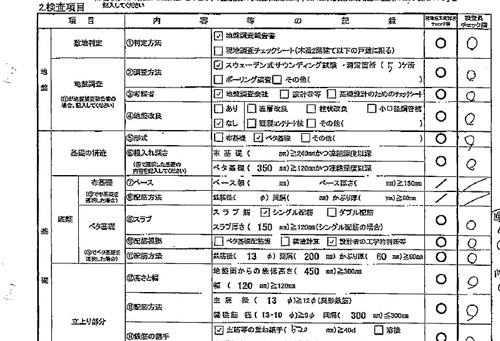 2.検査項目
記入してください
項 目 内 容 等 の 記 録 検査員チェック欄
地盤
敷地判定 ①判定方法 ☑地盤調査報告書
□現地調査チェックシート(木造2階建て以下の戸建に限る)
地盤調査 ②調査方法 ☑スウェーデン式サウンディング試験・測定箇所(5)ヶ所
□ボーリング調査 □その他( )
③考察者 ☑地盤調査会社 □設計者等 □基礎設計のためのチェックシート
④地盤改良 □あり □表層改良 □柱状改良 □小口径鋼管杭
☑なし □既製コンクリート杭 □その他( )
基礎
基礎の構造 ⑤形式 □布基礎 ☑ベタ基礎 □その他( )
⑥根入れ深さ 布基礎( mm)≧240mmかつ凍結深度以深
ベタ基礎( 350 mm)≧120mmかつ凍結深度以深
底盤
布基礎 ⑦ベース ベース幅( mm) ベース厚さ( mm)≧150mm
⑧配筋方法 鉄筋径( φ) 間隔( mm) かぶり厚( mm)≧60mm
ベタ基礎 ⑨スラブ スラブ筋 ☑シングル配筋 □ダブル配筋
スラブ厚さ( 150 mm)≧120mm(シングル配筋の場合)
⑩配筋根拠 □ベタ基礎配筋表 □構造計算 ☑設計者の工学的判断等
⑪配筋方法 鉄筋径( 13 φ) 間隔( 200 mm) かぶり厚( 60 mm)≧60mm
立上り部分 ⑫高さと幅 地盤面からの最低高さ( 450 mm)≧300mm
幅( 120 mm)≧120mm
⑬配筋方法 主筋径( 13 φ)≧12φ(異形鉄筋)
補強筋径( 13-10 φ)≧9φ 間隔( 300 mm)≦300mm
⑭鉄筋の継手 ☑主筋等の重ね継手( )≧40d □溶接